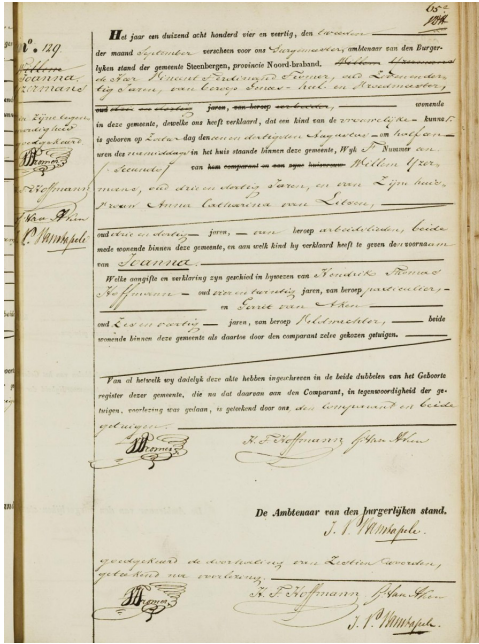 65
N.º 129
Willem
Joanna
Yzermans
De zyne tegen-
woordigheid
goedgekeurd
Tromer
H. F. Hoffmann
G. Van Aken
J. P. Vantapele
Het jaar een duizend acht honderd vier en veertig, den tweeden
der maand September verscheen voor ons Burgemeester, ambtenaar van den Burger-
lyken stand der gemeente Steenbergen, provincie Noord-braband. Willem Yzermans
de Heer Ferdinand Tromer, oud
tig Jaren, van beroep heel- en Vroedmeester,
oud drie en dertig jaren, van beroep arbeider, wonende
in deze gemeente, dewelke ons heeft verklaard, dat een kind van de vrouwelyke kunne
is geboren op Zatur dag den een dertigsten Augustus en half
uren des namiddags in het huis staande binnen deze gemeente, Wyk F Nummer
van hem comparant en van zyne huisvrouw Willem Yzer-
mans, oud drie en dertig Jaren, en van Zyne huis-
vrouw Anna Catharina van
oud drie en dertig jaren, van beroep arbeidslieden, beide
mede wonende binnen deze gemeente, en aan welk kind hy verklaard heeft te geven den voornaam
van Joanna
Welke aangifte en verklaring zyn geschied in bywezen van Hendrik Thomas
Hoffmann oud en twintig jaren, van beroep particulier,
en Gerrit van Aken
oud Zeven veertig jaren, van beroep Veldwachter, beide
wonende binnen deze gemeente als daartoe door den comparant zelve gekozen getuigen.
Van al hetwelk wy dadelyk deze akte hebben ingeschreven in de beide dubbelen van het Geboorte
register dezer gemeente, die na dat daarvan aan den Comparant, in tegenwoordigheid der ge-
tuigen, voorlezing was gedaan, is geteekend door ons, den Comparant en beide
getuigen.
Tromer H. F. Hoffmann G. Van Aken
De Ambtenaar van den burgerlyken stand.
J. P. Vantapele.
goedgekeurd de doorhaling van Zestien woorden,
geteekend na voorlezing.
Tromer H. F. Hoffmann G. Van Aken
J. P. Vantapele.